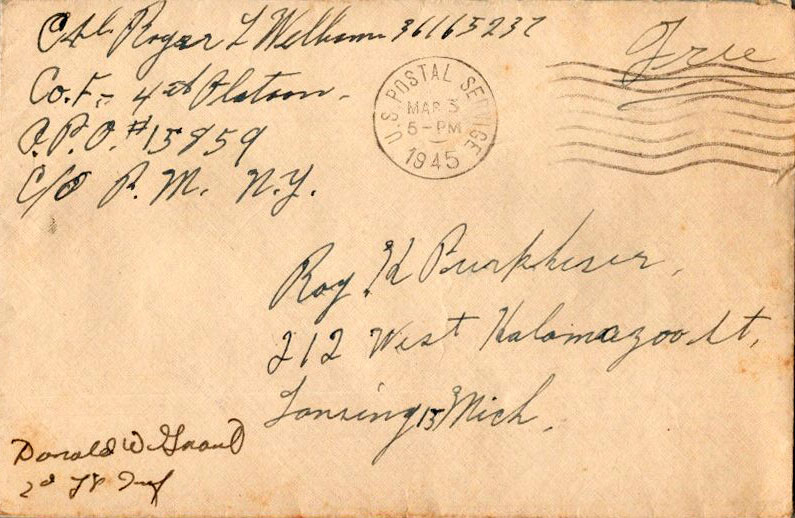 Cpl. Roger L Wellman 36165237
Co. F - 4th Platoon.
A.P.O. #15859
C/O P.M. N.Y.
U.S. POSTAL SERVICE
MAR 3
5-PM
1945
Free
Roy H Burkheiser,
212 West Kalamazoo St,
Lansing 15, Mich.
Donald W
2d Lt Inf